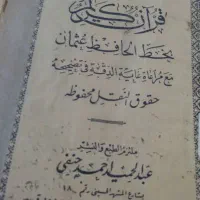 قرآن كريم
بخط الحافظ عثمان
مع مراعاة غاية الدقة في تصحيحه
حقوق النقل محفوظه
ملتزم الطبع والنشر
عبد الحميد أحمد حنفي
بشارع المشهد الحسيني رقم ١٨